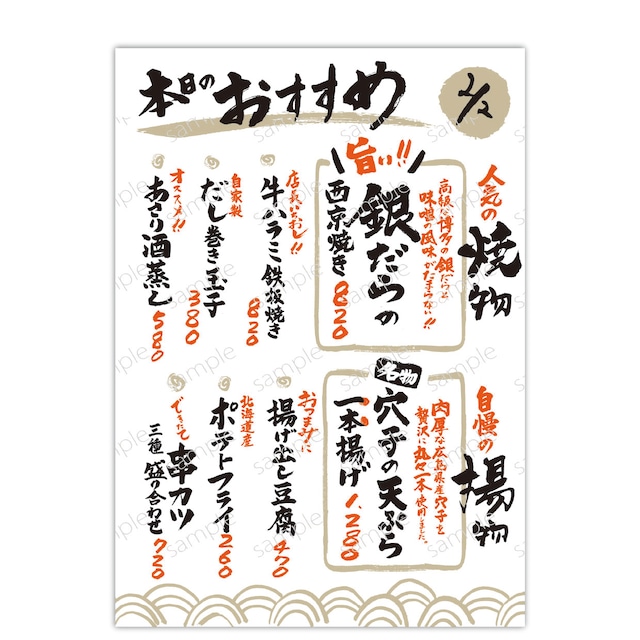 本日のおすすめ
2/2
人気の
焼物
旨い!!
高級な博多の銀だらと
味噌の風味がたまらない!!
銀だらの
西京焼き 820
店長いちおし!!
牛ハラミ鉄板焼き 820
自家製
だし巻き玉子 380
オススメ!!
あさり酒蒸し 580
自慢の
揚物
名物
肉厚な広島県産穴子を
贅沢に丸々一本使用しました。
穴子の天ぷら
一本揚げ 1,280
おつまみに
揚げ出し豆腐 470
北海道産
ポテトフライ 260
できたて
串カツ
三種盛り合わせ 720
sample